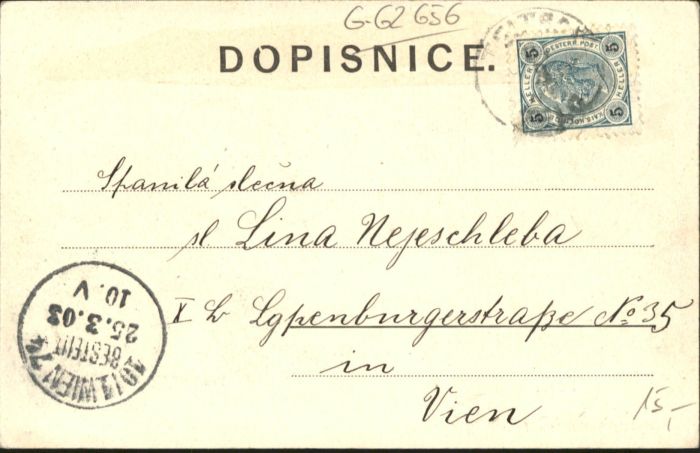 G-G2 656
DOPISNICE.
5 5 5 5
OESTERR. POST.
HELLER HELLER
Spanilá slečna
sl Lina Nejeschleba
X Lgpenburgerstraße No 35
in
Vien
10/1 WIEN 74
BESTELLT
25.3.03
10.V
15,-